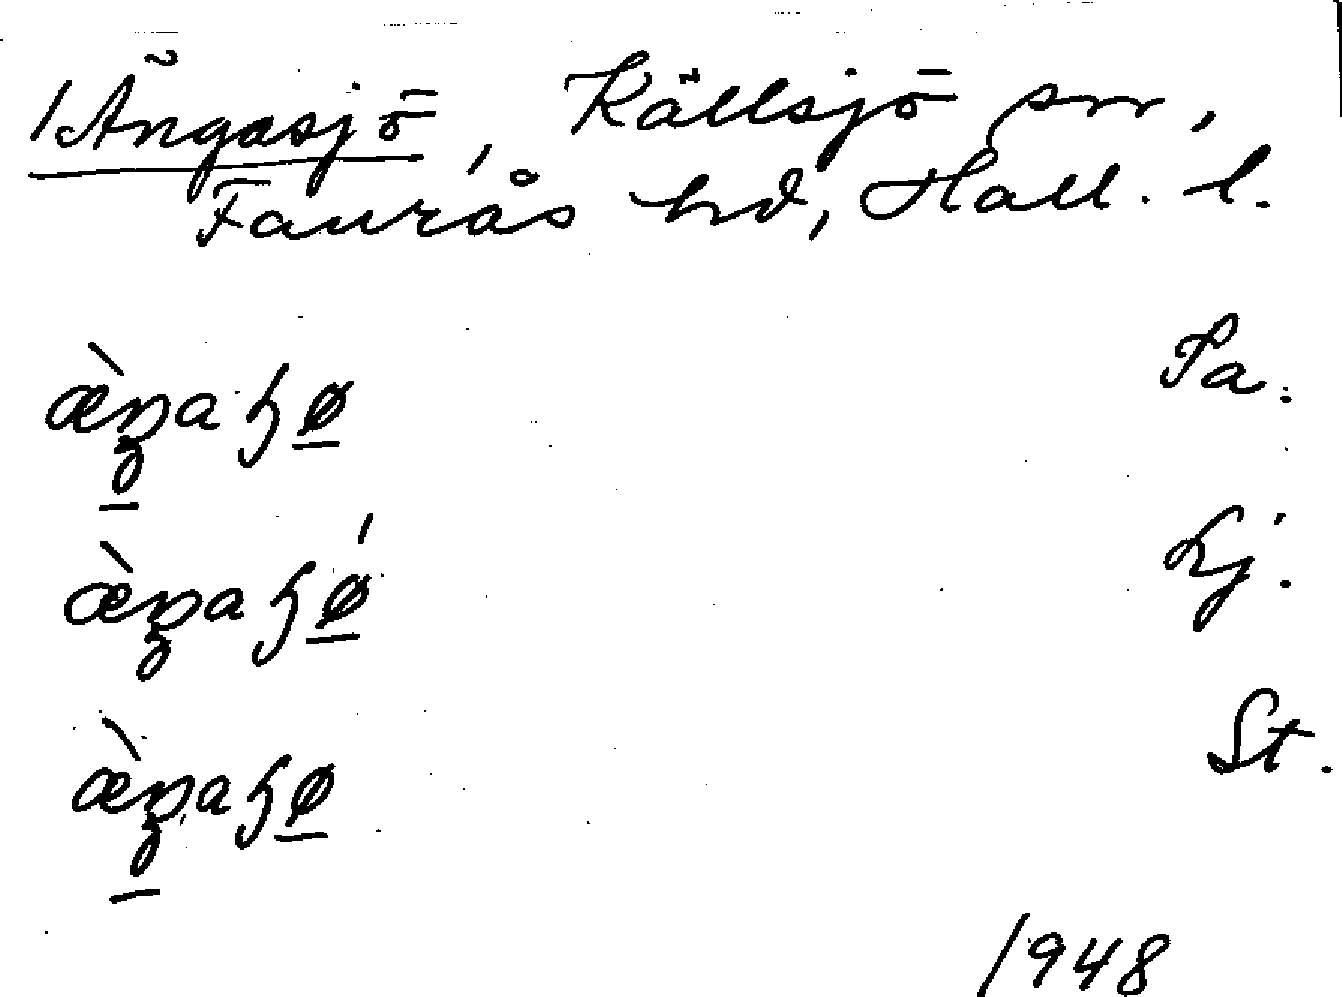 /Ängasjö, Källsjö sn,
Faurås hd, Hall. l.
æ̀ŋaɧø Pa.
æ̀ŋaɧǿ Lj.
æ̀ŋaɧø St.
1948